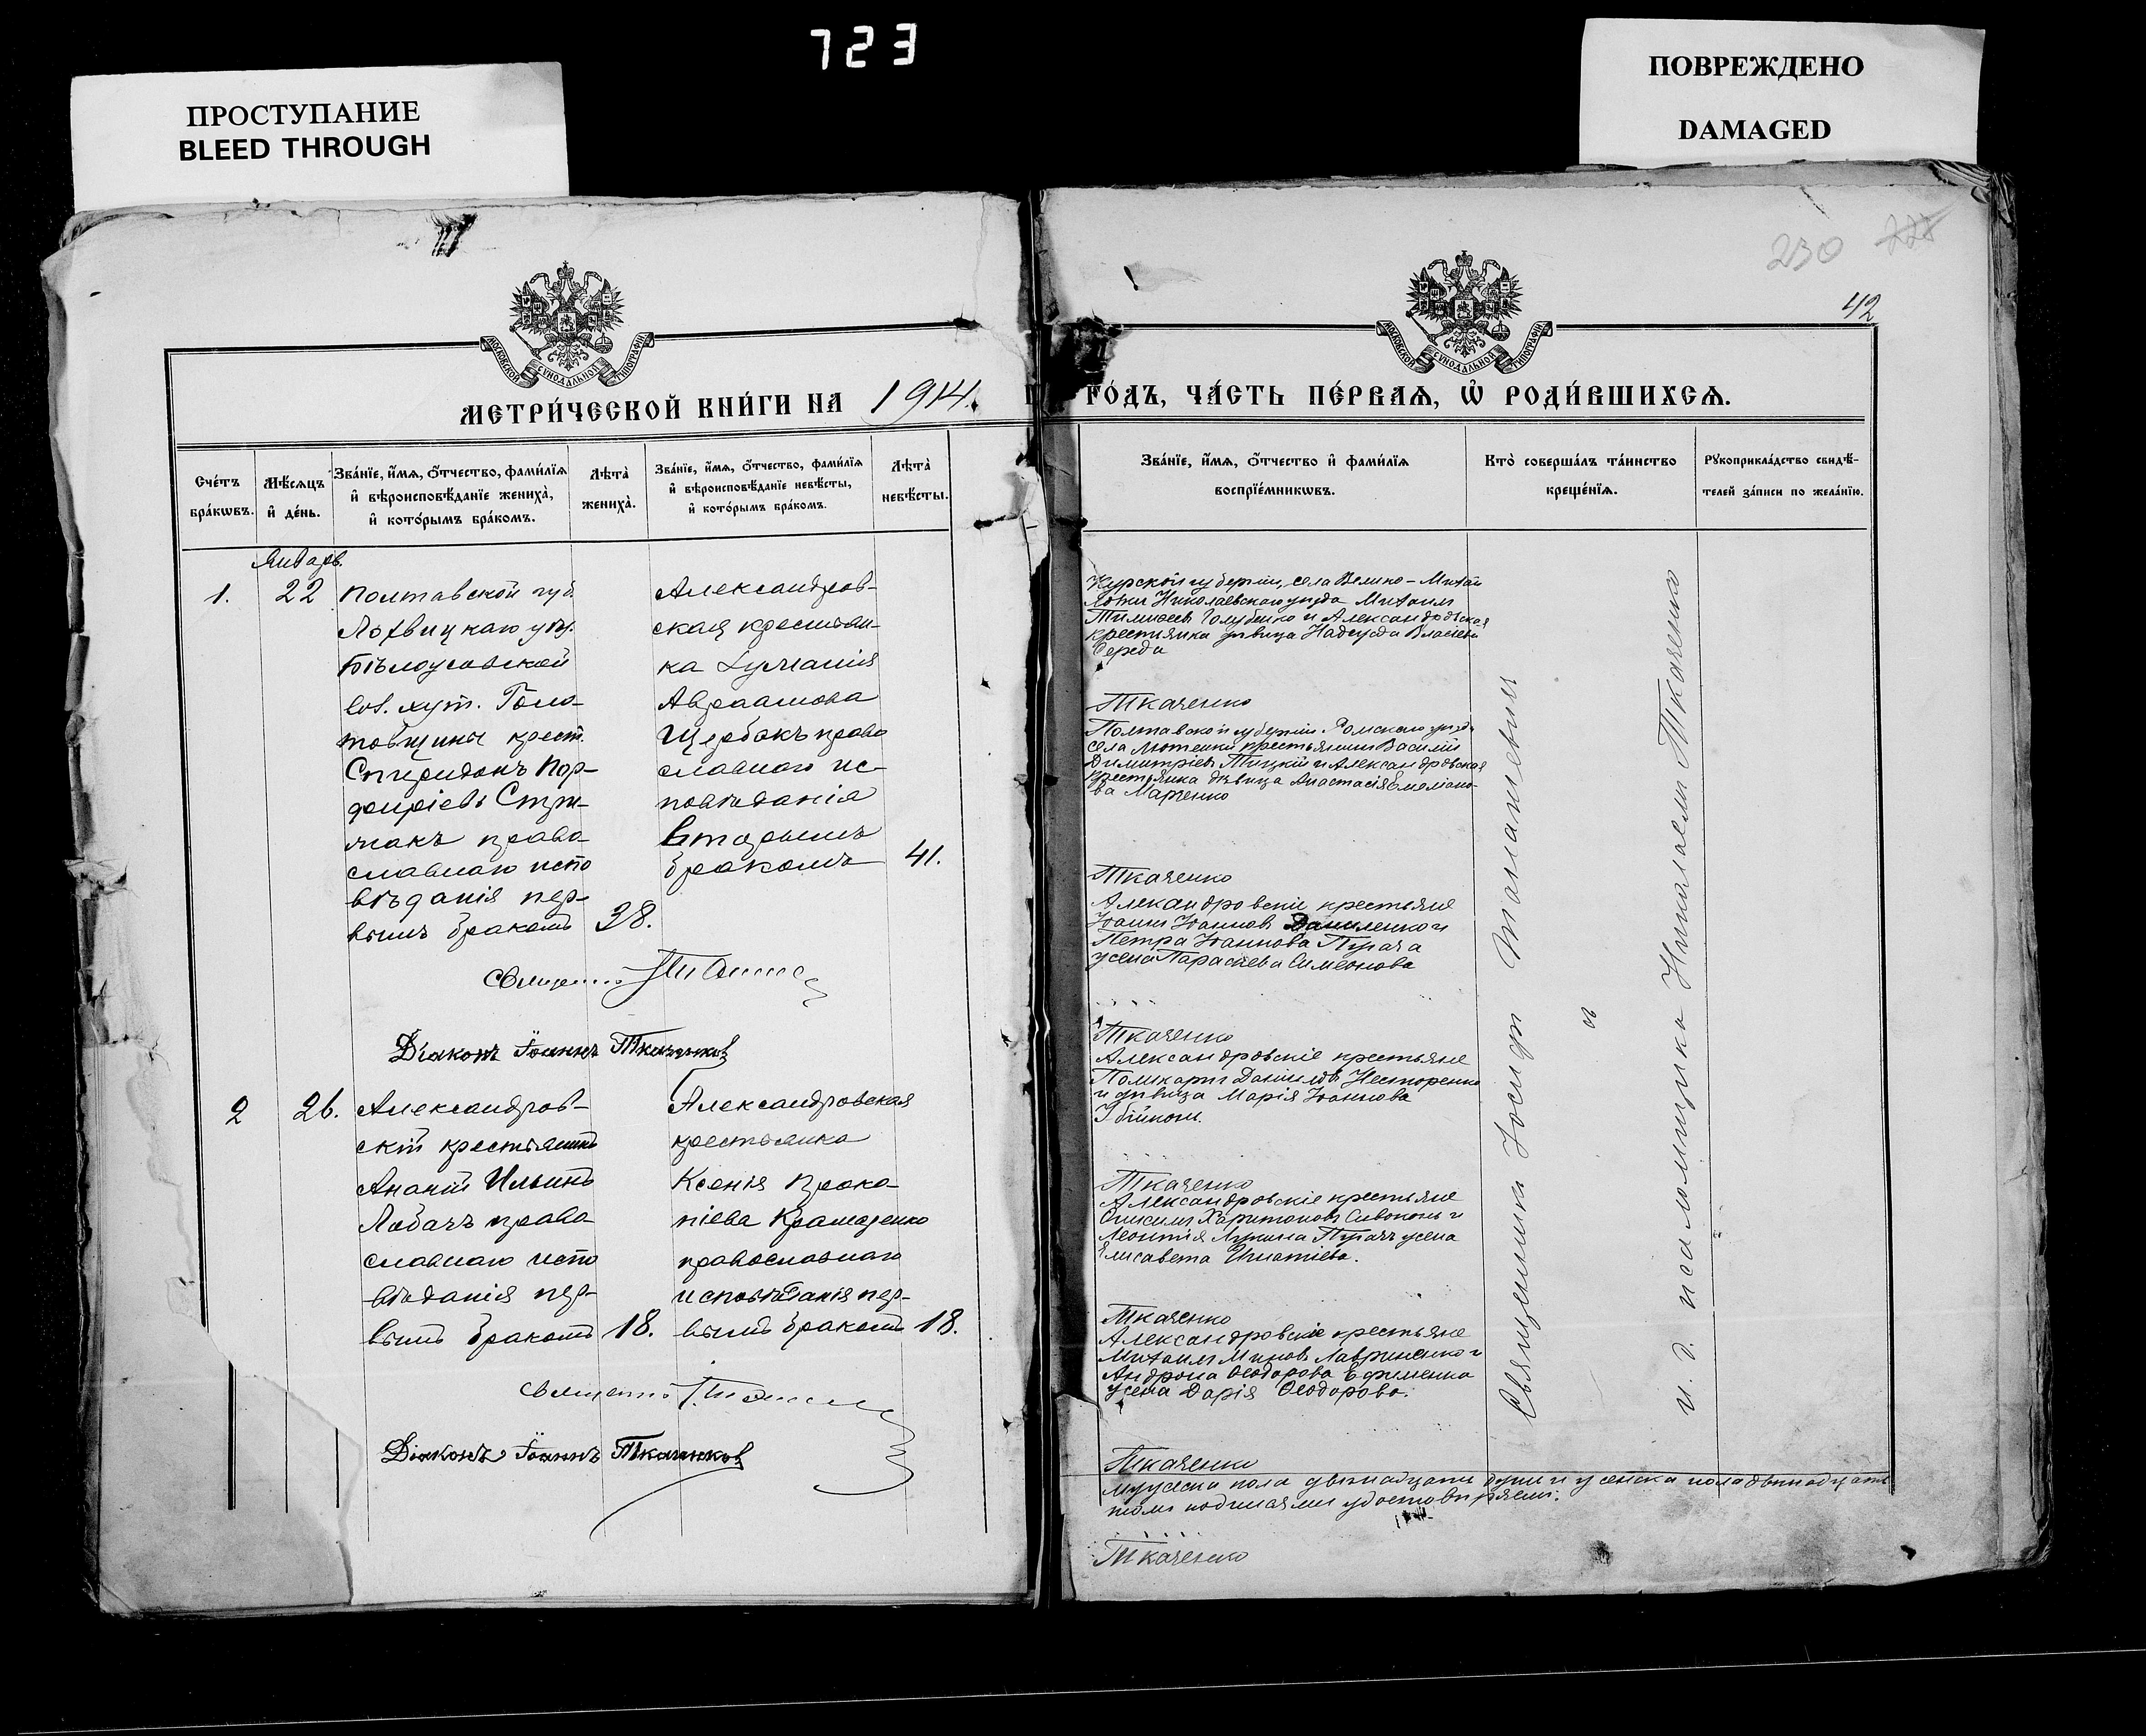 723
ПРОСТУПАНИЕ
BLEED THROUGH
ПОВРЕЖДЕНО
DAMAGED
230
42
МОСКОВСКОЙ СУНОДАЛЬНОЙ ТИПОГРАФІИ
МОСКОВСКОЙ СУНОДАЛЬНОЙ ТИПОГРАФІИ
МЕТРИ́ЧЕСКОЙ КНИ́ГИ НА 1914.
ГО́ДЪ, ЧА́СТЬ ПЕ́РВАѦ, Ѡ҆ РОДИ́ВШИХСѦ.
Сче́тъ бра́кѡвъ.
Мѣ́сѧцъ и҆ де́нь.
Зва́нїе, и҆́мѧ, ѻ҆́тчество, фами́лїѧ
и҆ вѣроисповѣ́данїе жениха̀,
и҆ кото́рымъ бра́комъ.
Лѣта̀ жениха̀.
Зва́нїе, и҆́мѧ, ѻ҆́тчество, фами́лїѧ
и҆ вѣроисповѣ́данїе невѣ́сты,
и҆ кото́рымъ бра́комъ.
Лѣта̀ невѣ́сты.
Январь.
1.
22
Полтавской губ.
Лохвицкаго уѣз.
Бѣлоусовской
вол. хут. Голо-
товщины крест.
Спиридонъ Пор-
фиріевъ Стри-
жакъ право-
славнаго испо
вѣданія пер-
вымъ бракомъ
38.
Александров-
ская крестьян-
ка
Авраамова
Щербакъ право
славнаго ис-
повѣданія
вторымъ
бракомъ
41.
Діаконъ Іоаннъ Ткаченковъ
2
26.
Александров-
скій крестьянинъ
Ананій Ильинъ
Лобачъ право-
славнаго испо
вѣданія пер-
вымъ бракомъ
18.
Александровская
крестьянка
Ксенія Проко-
піева Крамаренко
православнаго
исповѣданія пер-
вымъ бракомъ
18.
Діаконъ Іоаннъ Ткаченковъ
Зва́нїе, и҆́мѧ, ѻ҆́тчество и҆ фами́лїѧ
воспрїе́мникѡвъ.
Кто̀ соверша́лъ та́инство
креще́нїѧ.
Рꙋкоприкла́дство свидѣ́-
телей за́писи по жела́нїю.
Курской губерніи, села Велико-Михай
Николаевскаго уѣзда Михаилъ
Тимоѳеевъ Голубенко и Александровская
крестьянка дѣвица Надежда Власіева
Середа
Ткаченко
Полтавской губерніи Роменскаго уѣзда
села Лютенки крестьянинъ Василій
Димитріевъ и Александровская
крестьянка дѣвица Анастасія Емеліано-
ва Марченко
Ткаченко
Александровскіе крестьяне
Іоаннъ Іоанновъ Даниленко и
Петра Іоаннова Пугача
жена Параскева Симеонова
Ткаченко
Александровскіе крестьяне
Поликарпъ Даніиловъ Несторенко
и дѣвица Марія Іоаннова
Ткаченко
Александровскіе крестьяне
Онисимъ Харитоновъ Сивоконь и
Леонтія Лукина Пугачъ жена
Елисавета Игнатіева.
Ткаченко
Александровскіе крестьяне
Михаилъ Миновъ Лавриненко и
Андрона Ѳеодорова Ефименка
жена Дарія Ѳеодорова.
Ткаченко
мужска пола двѣнадцать душъ и женска пола двѣнадцать
томъ подписями удостовѣряемъ.
Ткаченко
Священникъ Іосифъ
и
и. д. псаломщика Николаемъ Ткаченко